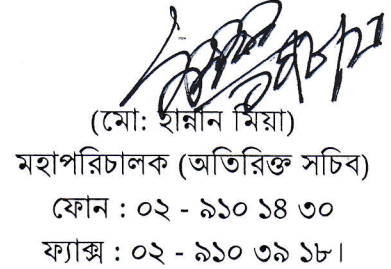 (মো: হান্নান মিয়া)
মহাপরিচালক (অতিরিক্ত সচিব)
ফোন : ০২ - ৯১০ ১৪ ৩০
ফ্যাক্স : ০২ - ৯১০ ৩৯ ১৮।